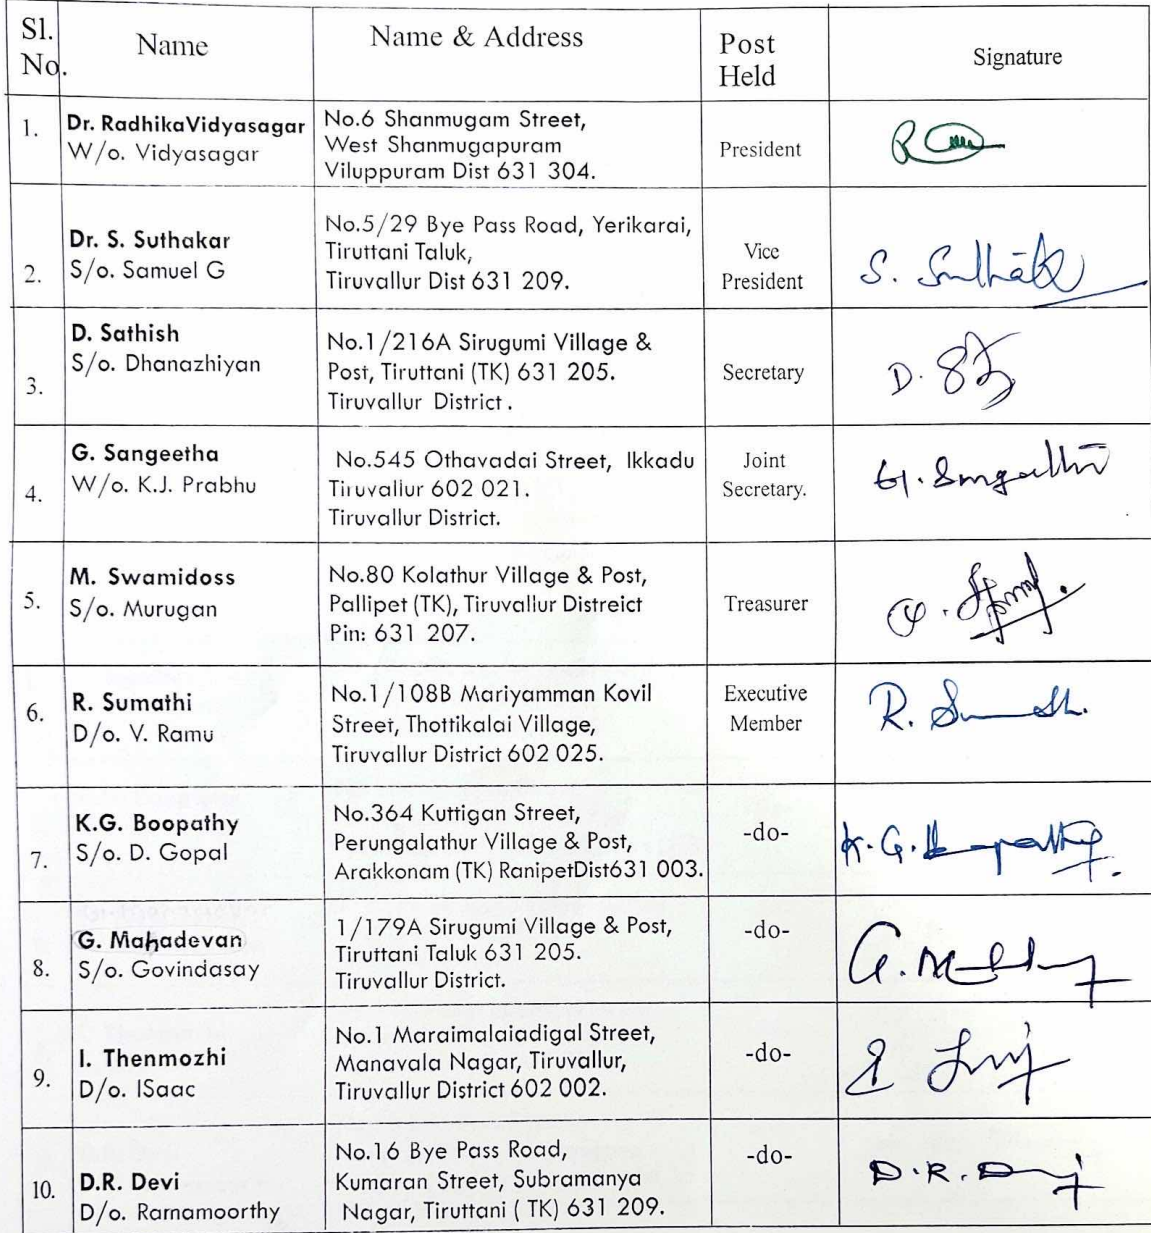 Sl.
No.
Name
Name & Address
Post
Held
Signature
1.
Dr. RadhikaVidyasagar
W/o. Vidyasagar
No.6 Shanmugam Street,
West Shanmugapuram
Viluppuram Dist 631 304.
President
2.
Dr. S. Suthakar
S/o. Samuel G
No.5/29 Bye Pass Road, Yerikarai,
Tiruttani Taluk,
Tiruvallur Dist 631 209.
Vice
President
S. Suthak
3.
D. Sathish
S/o. Dhanazhiyan
No.1/216A Sirugumi Village &
Post, Tiruttani (TK) 631 205.
Tiruvallur District.
Secretary
4.
G. Sangeetha
W/o. K.J. Prabhu
No.545 Othavadai Street, Ikkadu
Tiruvallur 602 021.
Tiruvallur District.
Joint
Secretary.
5.
M. Swamidoss
S/o. Murugan
No.80 Kolathur Village & Post,
Pallipet (TK), Tiruvallur Distreict
Pin: 631 207.
Treasurer
6.
R. Sumathi
D/o. V. Ramu
No.1/108B Mariyamman Kovil
Street, Thottikalai Village,
Tiruvallur District 602 025.
Executive
Member
7.
K.G. Boopathy
S/o. D. Gopal
No.364 Kuttigan Street,
Perungalathur Village & Post,
Arakkonam (TK) RanipetDist631 003.
-do-
8.
G. Mahadevan
S/o. Govindasay
1/179A Sirugumi Village & Post,
Tiruttani Taluk 631 205.
Tiruvallur District.
-do-
9.
I. Thenmozhi
D/o. ISaac
No.1 Maraimalaiadigal Street,
Manavala Nagar, Tiruvallur,
Tiruvallur District 602 002.
-do-
10.
D.R. Devi
D/o. Rarnamoorthy
No.16 Bye Pass Road,
Kumaran Street, Subramanya
Nagar, Tiruttani ( TK) 631 209.
-do-